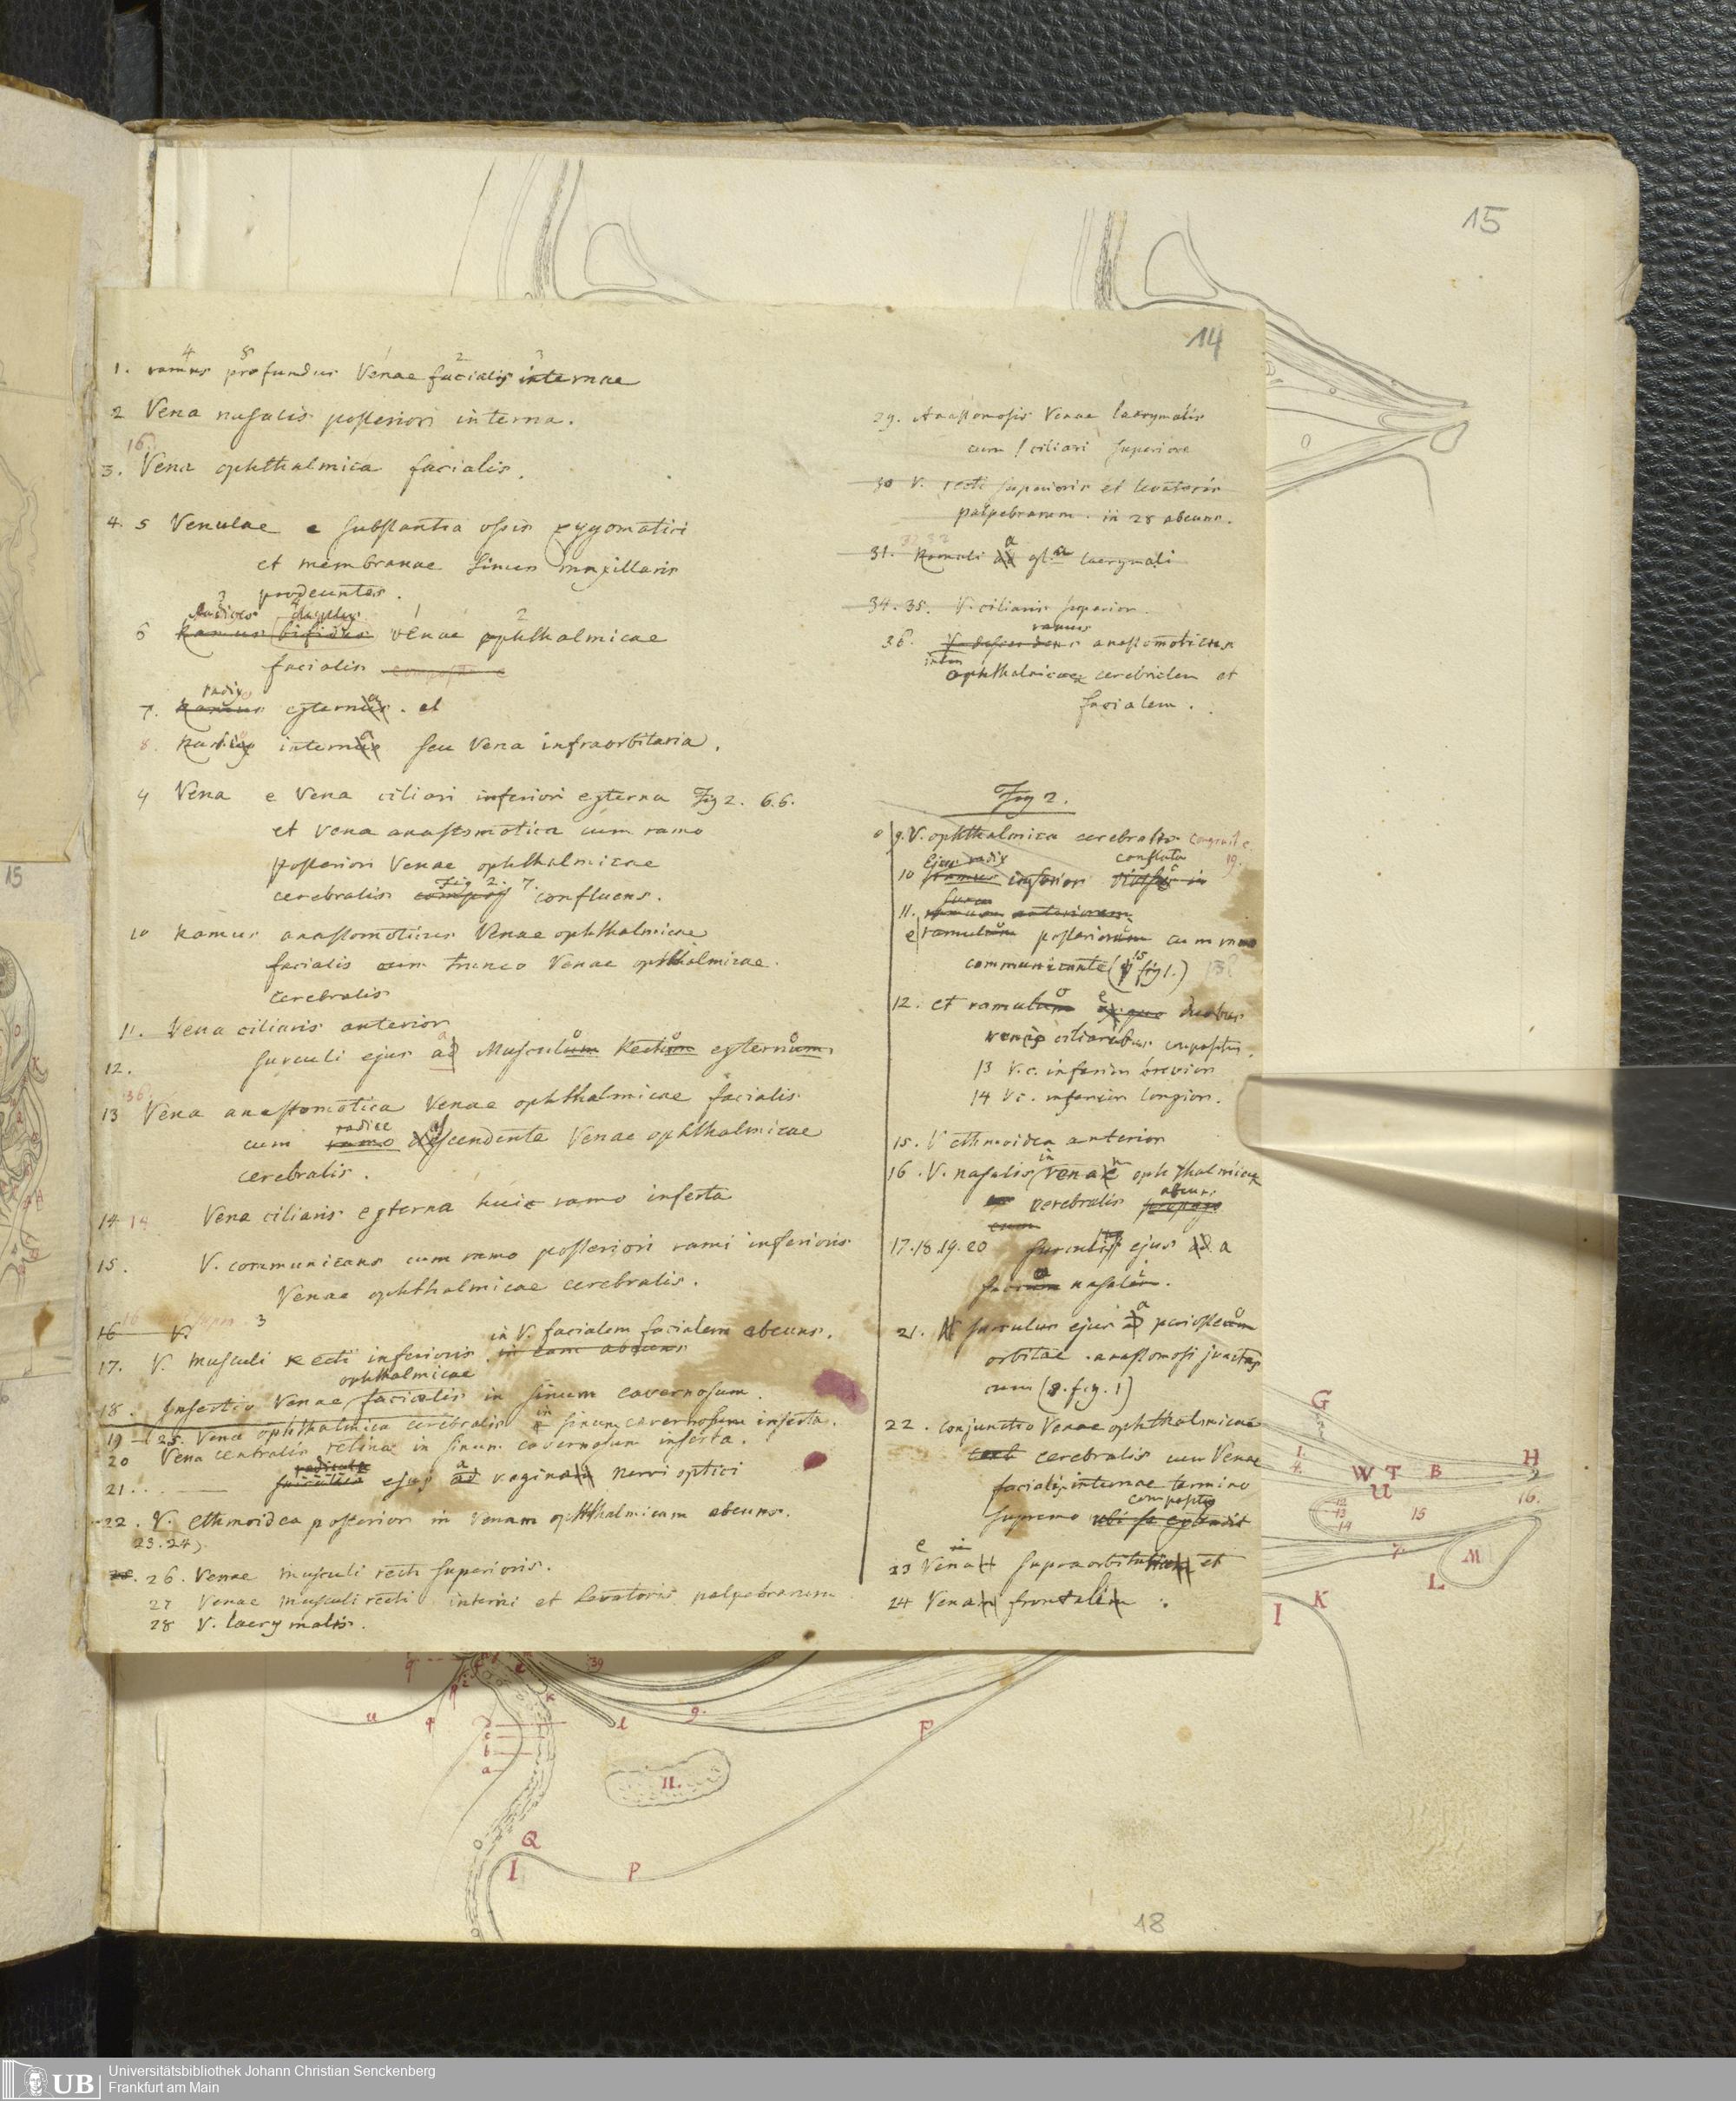 15
14
1. ramus profundus Venae facialis internae
2 Vena nasalis posterior interna.
3. Vena ophthalmica facialis.
4. 5 Venulae e substantia ossis zygomatici
et membranae sinus maxillaris
prodeuntes.
radices duplex
6 Ramus bifidus venae ophthalmicae
facialis
radix
7. Ramus externus. et
8. Radix interna seu Vena infraorbitaria.
9 Vena e Vena ciliari inferiori externa Fig 2. 6.6.
et vena anastomotica cum ramo
posteriori Venae ophthalmicae
Fig 2. 7.
cerebralis confluens.
10 Ramus anastomoticus Venae ophthalmicae
facialis cum trunco Venae ophthalmicae
cerebralis
11. Vena ciliaris anterior
12. surculi ejus a Musculo Recto externo
13 Vena anastomotica Venae ophthalmicae facialis
radice
cum ramo descendente Venae ophthalmicae
cerebralis.
14 14 Vena ciliaris externa huic ramo inserta
15. V. communicans cum ramo posteriori rami inferioris
Venae ophthalmicae cerebralis.
16 V. 3
in V. facialem facialem abeuns.
17. V. musculi recti inferioris in eam abeuns
ophthalmicae
18. Insertio Venae facialis in sinum cavernosum.
19 - 25. Vena ophthalmica cerebralis in sinum cavernosum inserta.
20 Vena centralis retinae in sinum cavernosum inserta.
21. ejus a vagina nervi optici
22. V. ethmoidea posterior in Venam ophthalmicam abeuns.
23.24)
26. Venae musculi recti superioris.
27 Venae musculi recti interni et levatoris palpebrarum
28 V. lacrymalis.
29. Anastomosis Venae lacrymalis
cum ciliari superiore
30 V. recti superioris et levatoris
palpebrarum. in 28 abeuns.
31. Ramuli a gla lacrymali
34. 35. V. ciliaris superior.
ramus
36. V. descendens anastomoticus
inter
ophthalmicam cerebralem et
facialem.
Fig 2.
9. V. ophthalmica cerebralis
19.
Ejus radix conflata
10 ramus inferior divisus in
11. ramum anteriorem
e ramulo posteriori cum ramo
communicante (15 fig 1.)
12. et ramulo e duobus
venis ciliaribus compositus.
13 V. c. inferior brevior
14 V c. inferior longior.
15. V ethmoidea anterior
16. V. nasalis in venam ophthalmicam
abeuns
cerebralis
17.18.19.20 surculi ejus a
nasali.
21. surculus ejus a periosteo
orbitae. anastomosi junctus
cum (8. fig. 1)
22. Conjunctio Venae ophthalmicae
cerebralis cum Vena
facialis internae termino
composito
supremo ubi se extendit
e
23 Vena supraorbitali et
24 Vena frontali.
G
1.
4.
W T B H
U
16.
12
13
14
15
7.
M
L
K
I
39
q
e
k
u
q
l
g.
d
c
b
a
F
II.
Q
I
P
18
15
UB
Universitätsbibliothek Johann Christian Senckenberg
Frankfurt am Main